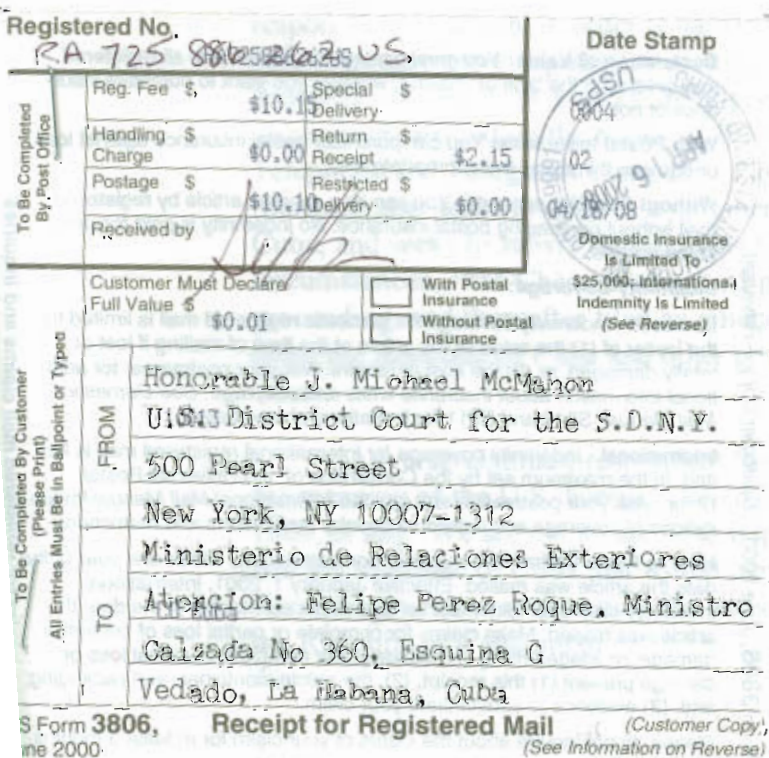 Registered No.
Date Stamp
RA 725 886 262 US
To Be Completed
By Post Office
Reg. Fee $ $10.15
Special Delivery $
Handling Charge $ $0.00
Return Receipt $ $2.15
Postage $ $10.10
Restricted Delivery $ $0.00
Received by
USPS
0004
02
APR 16
04/16/08
Domestic Insurance
Is Limited To
$25,000; International
Indemnity Is Limited
(See Reverse)
Customer Must Declare
Full Value $ $0.01
With Postal
Insurance
Without Postal
Insurance
To Be Completed By Customer
(Please Print)
All Entries Must Be in Ballpoint or Typed
FROM
Honorable J. Michael McMahon
U.S. District Court for the S.D.N.Y.
500 Pearl Street
New York, NY 10007-1312
TO
Ministerio de Relaciones Exteriores
Atencion: Felipe Perez Roque, Ministro
Calzada No 360, Esquina G
Vedado, La Habana, Cuba
S Form 3806, Receipt for Registered Mail (Customer Copy)
ne 2000 (See Information on Reverse)